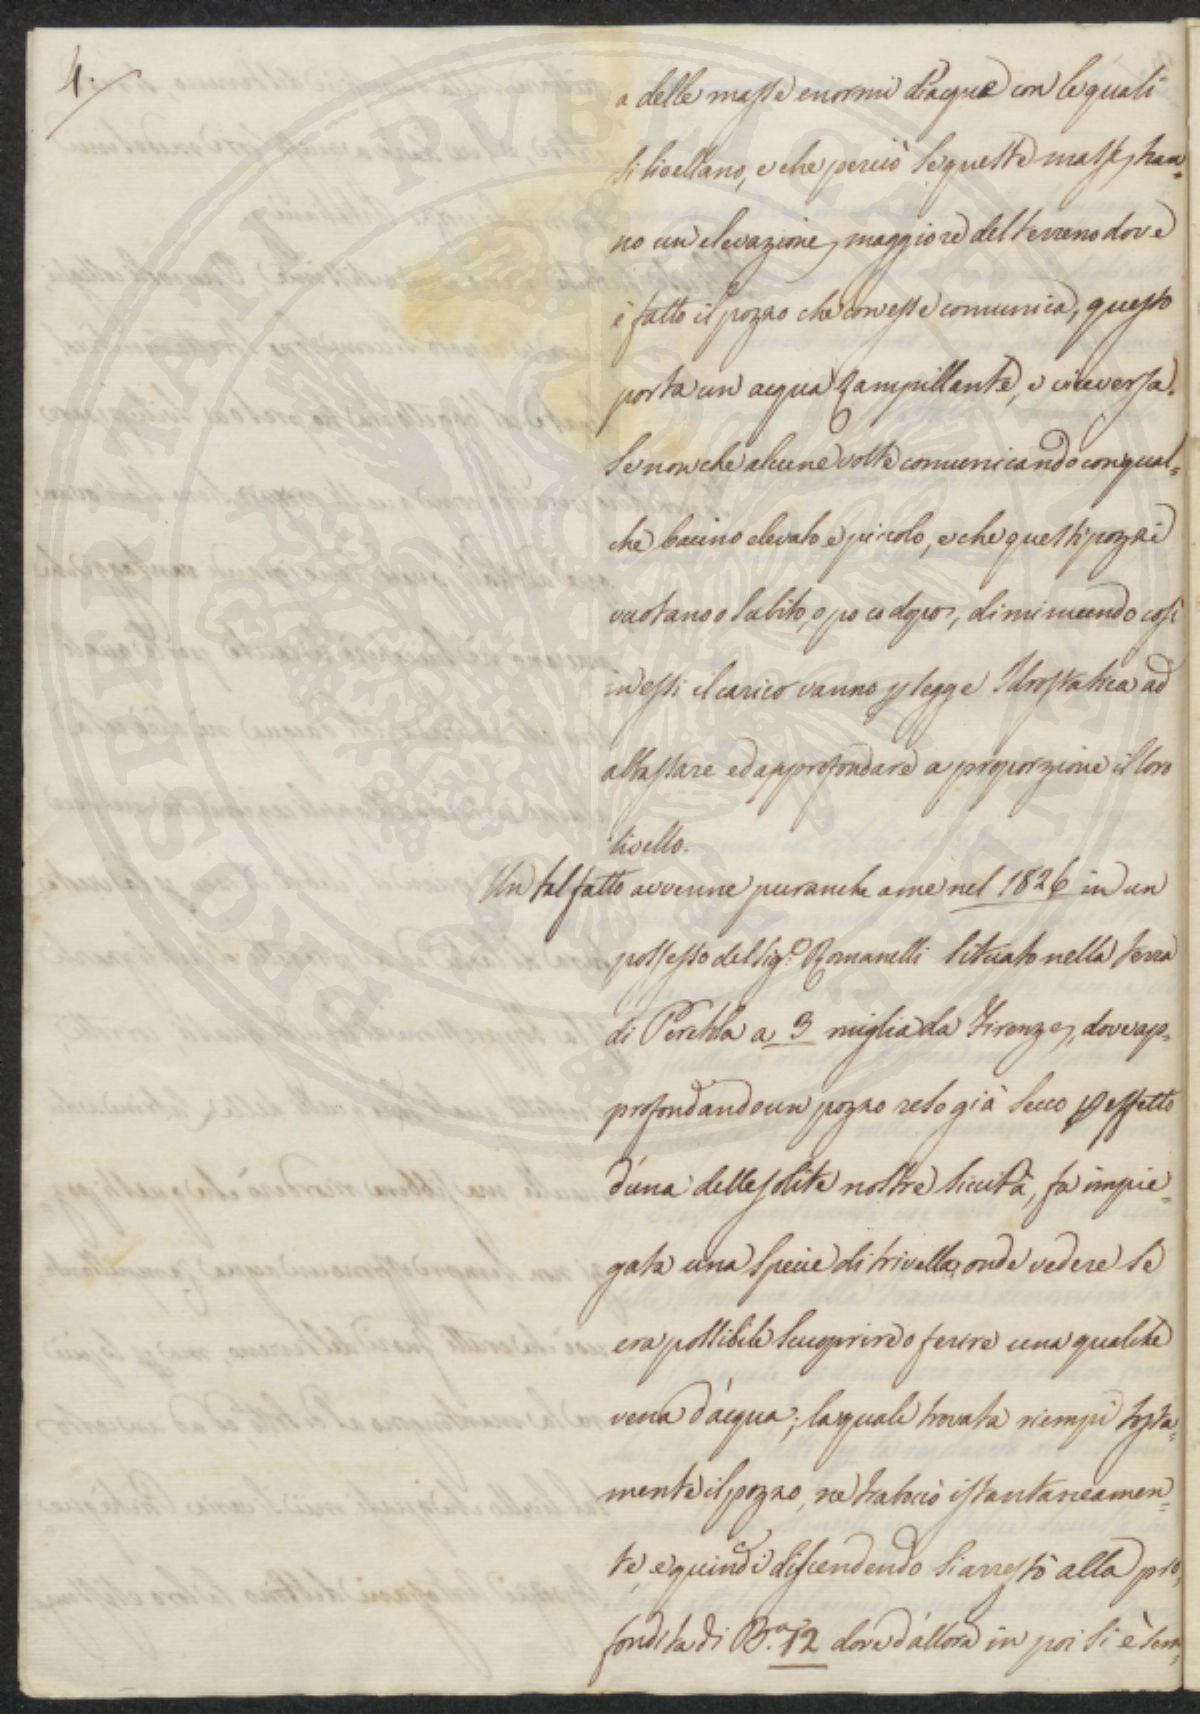 4.
a delle masse enormi d'acque con le quali
si livellano, e che perciò se queste masse han=
no un elevazione maggiore del terreno dove
è fatto il pozzo che con esse comunica, questo
porta un acqua zampillante, e viceversa.
Se non che alcune volte comunicando con qual=
che bacino elevato e piccolo, e che questi pozzi
vuotano o subito, o poco dopo, diminuendo così
in essi il carico vanno p legge Idrostatica ad
abbassare ed approfondare a proporzione il loro
livello.
Un tal fatto avvenne puranche a me nel 1826 in un
possesso del Sigr. Romanelli situato nella terra
di Peretola a 3 miglia da Firenze, dove ap=
profondando un pozzo reso già secco p effetto
d'una delle solite nostre siccità, fù impie=
gata una specie di trivella, onde vedere se
era possibile scuoprire o ferire una qualche
vena d'acqua; la quale trovata riempì tosta=
mente il pozzo, ne traboccò istantaneamen=
te, e quindi discendendo si arrestò alla pro=
fondità di Ba. 12 dove d'allora in poi si è sem=
PROSPERITATI PVBLICAE AVGENDAE